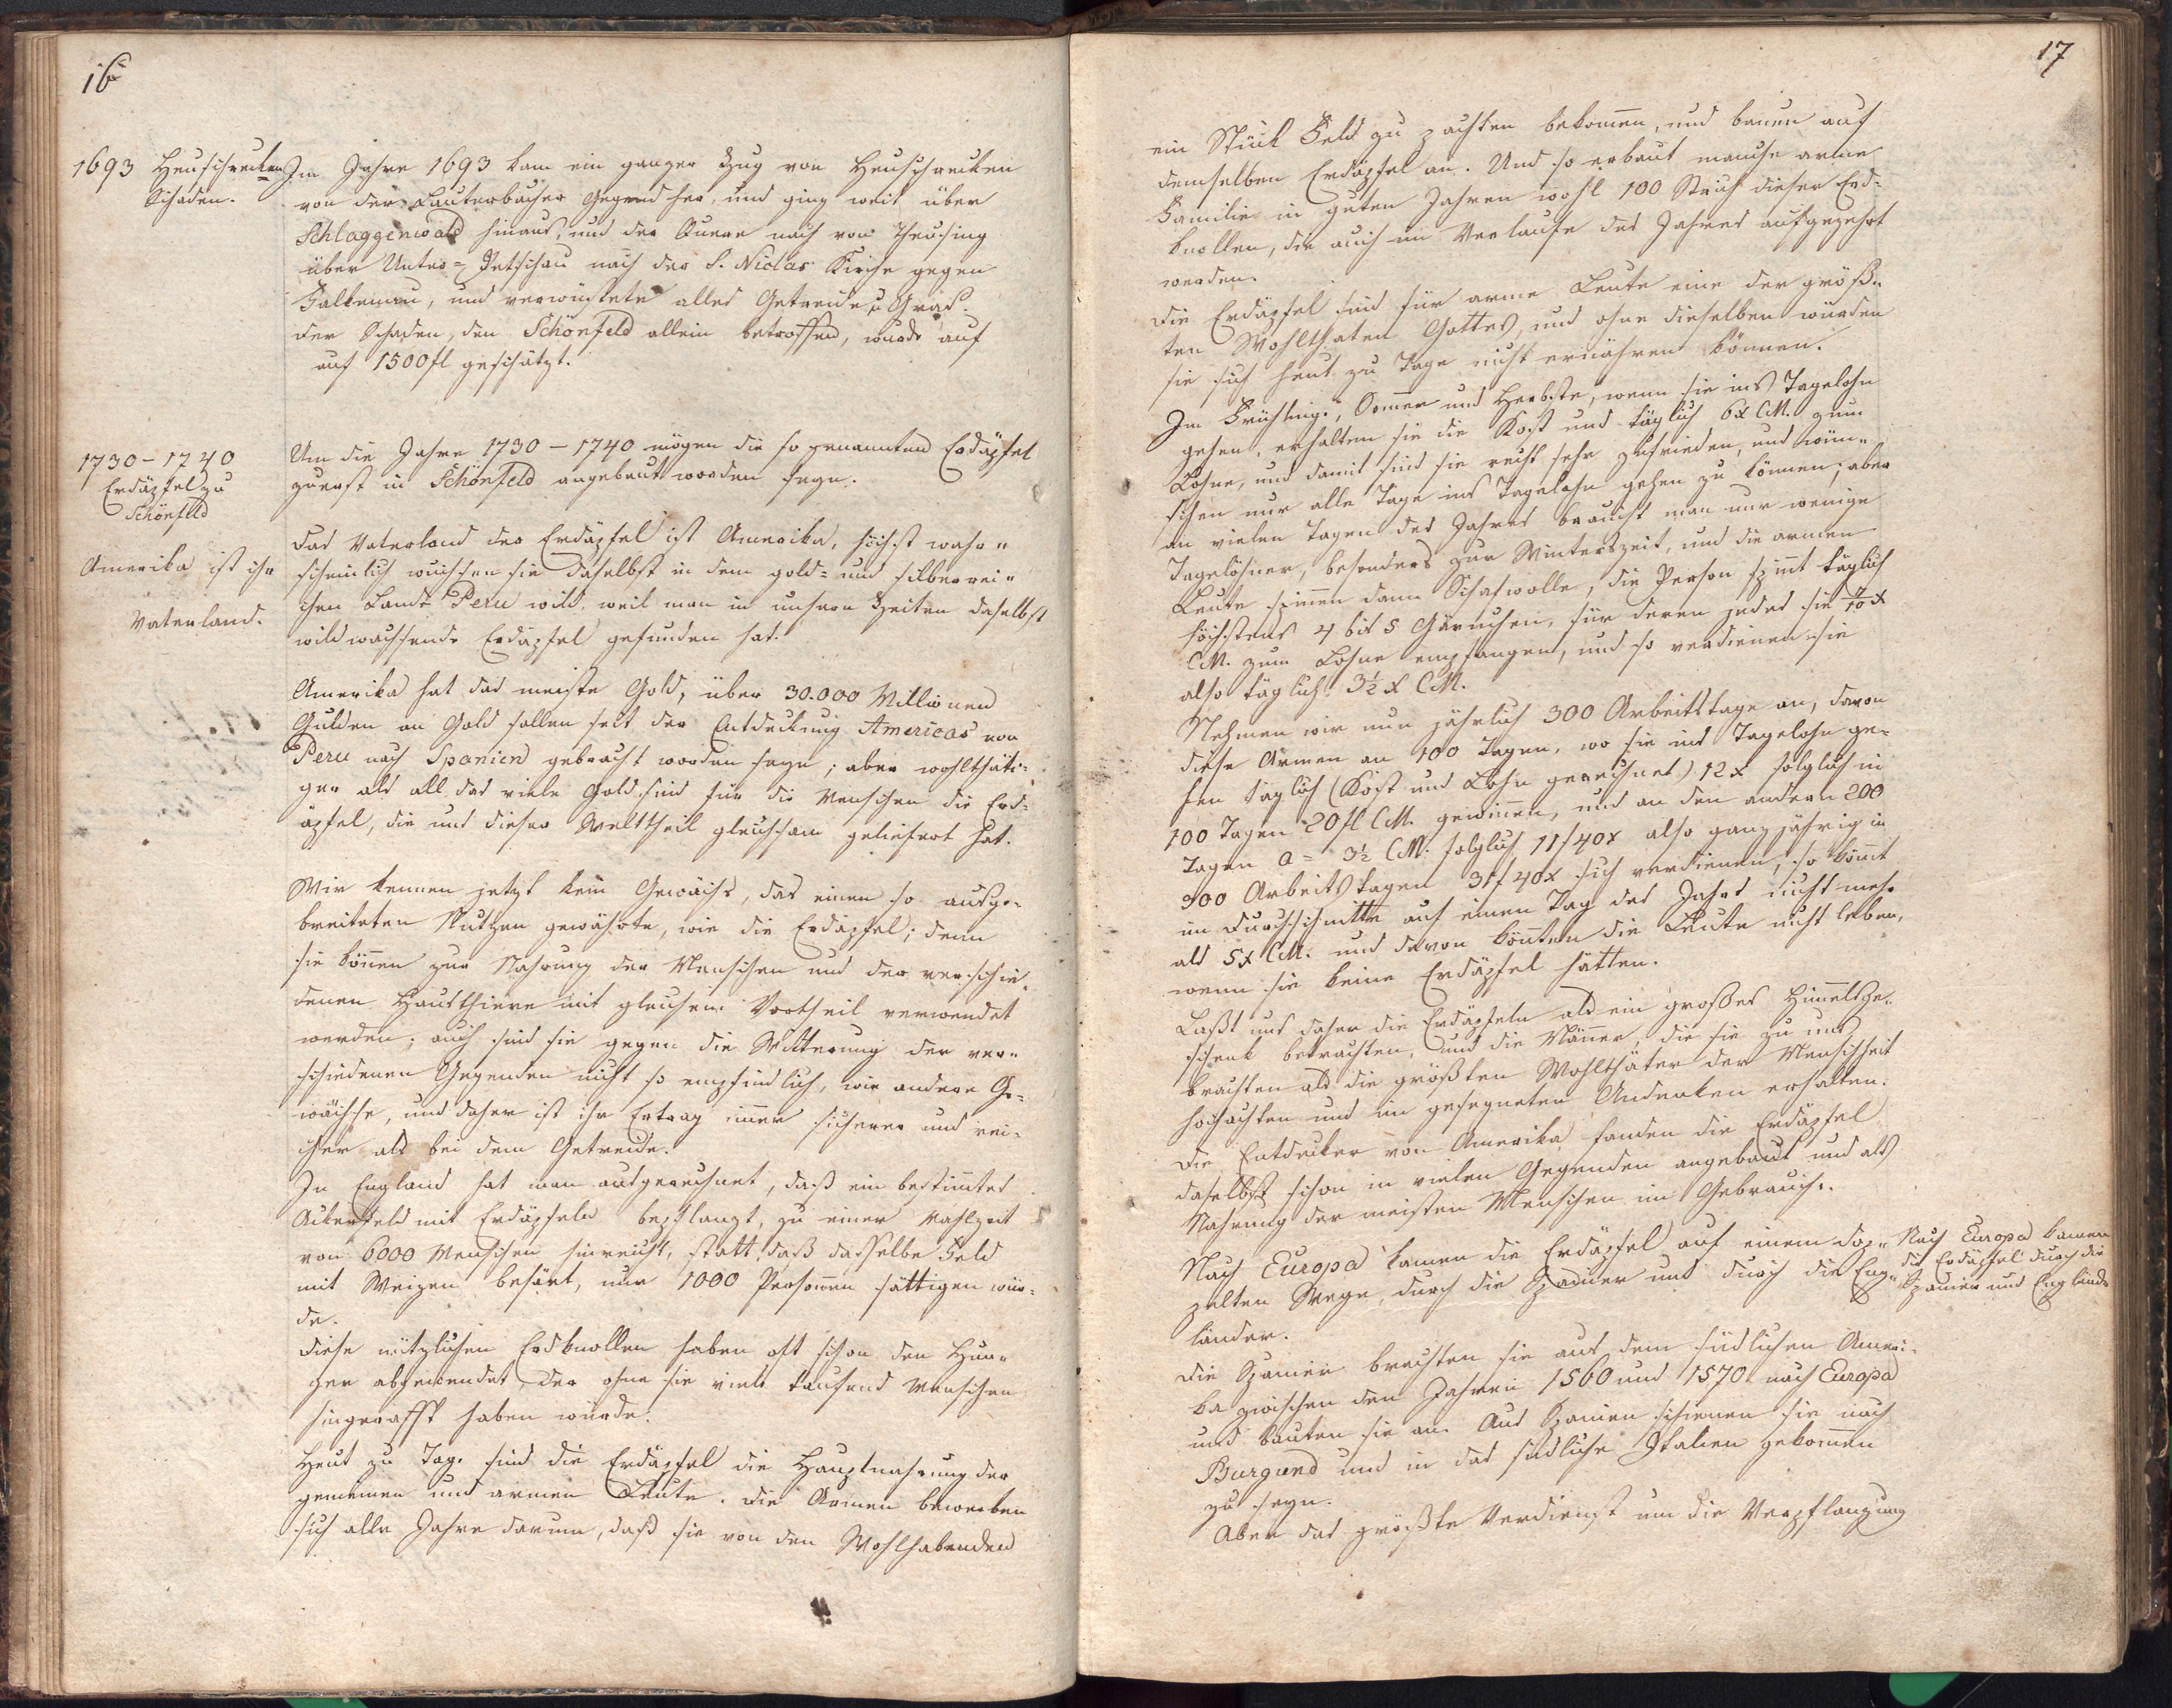 16
1693 Heuschrecken
Schaden.
Im Jahre 1693 kam ein ganzer Zug von Heuschrecken
von der Lauterbacher Gegend her, und ging weit über
Schlaggenwald hinaus, und der Quere nach von Theusing
über Unter-Petschau nach der S. Niclas Kirche gegen
Falkenau, und verwüstete alles Getreide u Gras.
Der Schaden, den Schönfeld allein betroffen, wurde auf
auf 1500 fl geschätzt.
1730 - 1740
Erdäpfel zu
Schönfeld
Um die Jahre 1730 - 1740 mögen die so genannten Erdäpfel
zuerst in Schönfeld angebaut worden seyn.
Amerika ist ihr
Vaterland.
Das Vaterland der Erdäpfel ist Amerika, höchst wahr-
scheinlich wuchsen sie daselbst in dem gold- und silberrei-
chen Lande Peru wild, weil man in unsern Zeiten daselbst
wildwachsende Erdäpfel gefunden hat.
Amerika hat das meiste Gold, über 30.000 Millionen
Gulden an Gold sollen seit der Entdeckung Americas von
Peru nach Spanien gebracht worden seyn; aber wohlthäti-
ger als all das viele Gold sind für die Menschen die Erd-
äpfel, die uns dieser Welttheil gleichsam geliefert hat.
Wir kennen jetzt kein Gewächs, das einen so ausge-
breiteten Nutzen gewährte, wie die Erdäpfel; denn
sie können zur Nahrung der Menschen und der verschie-
denen Hausthiere mit gleichem Vortheil verwendet
werden; auch sind sie gegen die Witterung der ver-
schiedenen Gegenden nicht so empfindlich, wie andere Ge-
wächse, und daher ist ihr Ertrag immer sicherer und rei-
cher als bei dem Getreide.
In England hat man ausgerechnet, daß ein bestimmtes
Ackerfeld mit Erdäpfeln bepflanzt, zu einer Mahlzeit
von 6000 Menschen hinreicht, statt daß dasselbe Feld
mit Weizen besäet, nur 1000 Personen sättigen wür-
de.
Diese nützlichen Erdknollen haben oft schon den Hun-
ger abgewendet, der ohne sie viele tausend Menschen
hingerafft haben würde.
Heut zu Tage sind die Erdäpfel die Hauptnahrung der
gemeinen und armen Leute. Die Armen bewerben
sich alle Jahre darum, daß sie von den Wohlhabenden
17
ein Stück Feld zu pachten bekommen, und bauen auf
demselben Erdäpfel an. Und so erbaut manche arme
Familie in guten Jahren wohl 100 Strich dieser Erd-
knollen, die auch im Verlaufe des Jahres aufgezehrt
werden.
Die Erdäpfel sind für arme Leute eine der größ-
ten Wohlthaten Gottes, und ohne dieselben würden
sie sich heut zu Tage nicht ernähren können.
Im Frühlinge, Sommer und Herbste, wenn sie ins Tagelohn
gehen, erhalten sie die Kost und täglich 6x CM. zum
Lohne, und damit sind sie recht sehr zufrieden, und wün-
schen nur alle Tage ins Tagelohn gehen zu können; aber
an vielen Tagen des Jahres braucht man nur wenige
Tagelöhner, besonders zur Winterszeit, und die armen
Leute spinnen dann Schafwolle, die Person spinnt täglich
höchstens 4 bis 5 Gärnchen, für deren jedes sie 7/10 x
CM. zum Lohne empfangen, und so verdienen sie
also täglich 3½ x CM.
Nehmen wir nun jährlich 300 Arbeitstage an, davon
diese Armen an 100 Tagen, wo sie ins Tagelohn ge-
hen täglich (Kost und Lohn gerechnet) 12 x folglich in
100 Tagen 20 fl CM. gewinnen, und an den andern 200
Tagen a= 3½ CM. folglich 11f 40x also ganzjährig in
300 Arbeitstagen 31f 40x sich verdienen, so kommt
im Durchschnitte auf einen Tag des Jahrs nicht mehr
als 5x CM. und davon könnten die Leute nicht leben,
wenn sie keine Erdäpfel hätten.
Laßt uns daher die Erdäpfeln als ein großes Himmelsge-
schenk betrachten, und die Männer, die sie zu uns
brachten als die größten Wohlthäter der Menschheit
hochachten und im gesegneten Andenken erhalten.
Die Entdecker von Amerika fanden die Erdäpfel
daselbst schon in vielen Gegenden angebaut und als
Nahrung der meisten Menschen im Gebrauche.
Nach Europa kamen die Erdäpfel auf einem dop-
pelten Wege, durch die Spanier und durch die Eng-
länder.
Nach Europa kamen
die Erdäpfel durch die
Spanier und Englände
Die Spanier brachten sie aus dem südlichen Ameri-
ka zwischen den Jahren 1560 und 1570 nach Europa
und bauten sie an. Aus Spanien scheinen sie nach
Burgund und in das südliche Italien gekommen
zu seyn.
Aber das größte Verdienst um die Verpflanzung